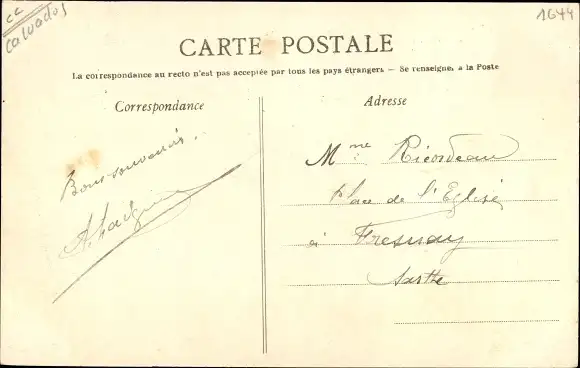 cc
Calvados
1644
CARTE POSTALE
La correspondance au recto n'est pas acceptée par tous les pays étrangers — Se renseigner à la Poste
Correspondance
Adresse
Bons souvenirs.
Mme Ricordeau
place de l'Eglise
à Fresnay
Sarthe